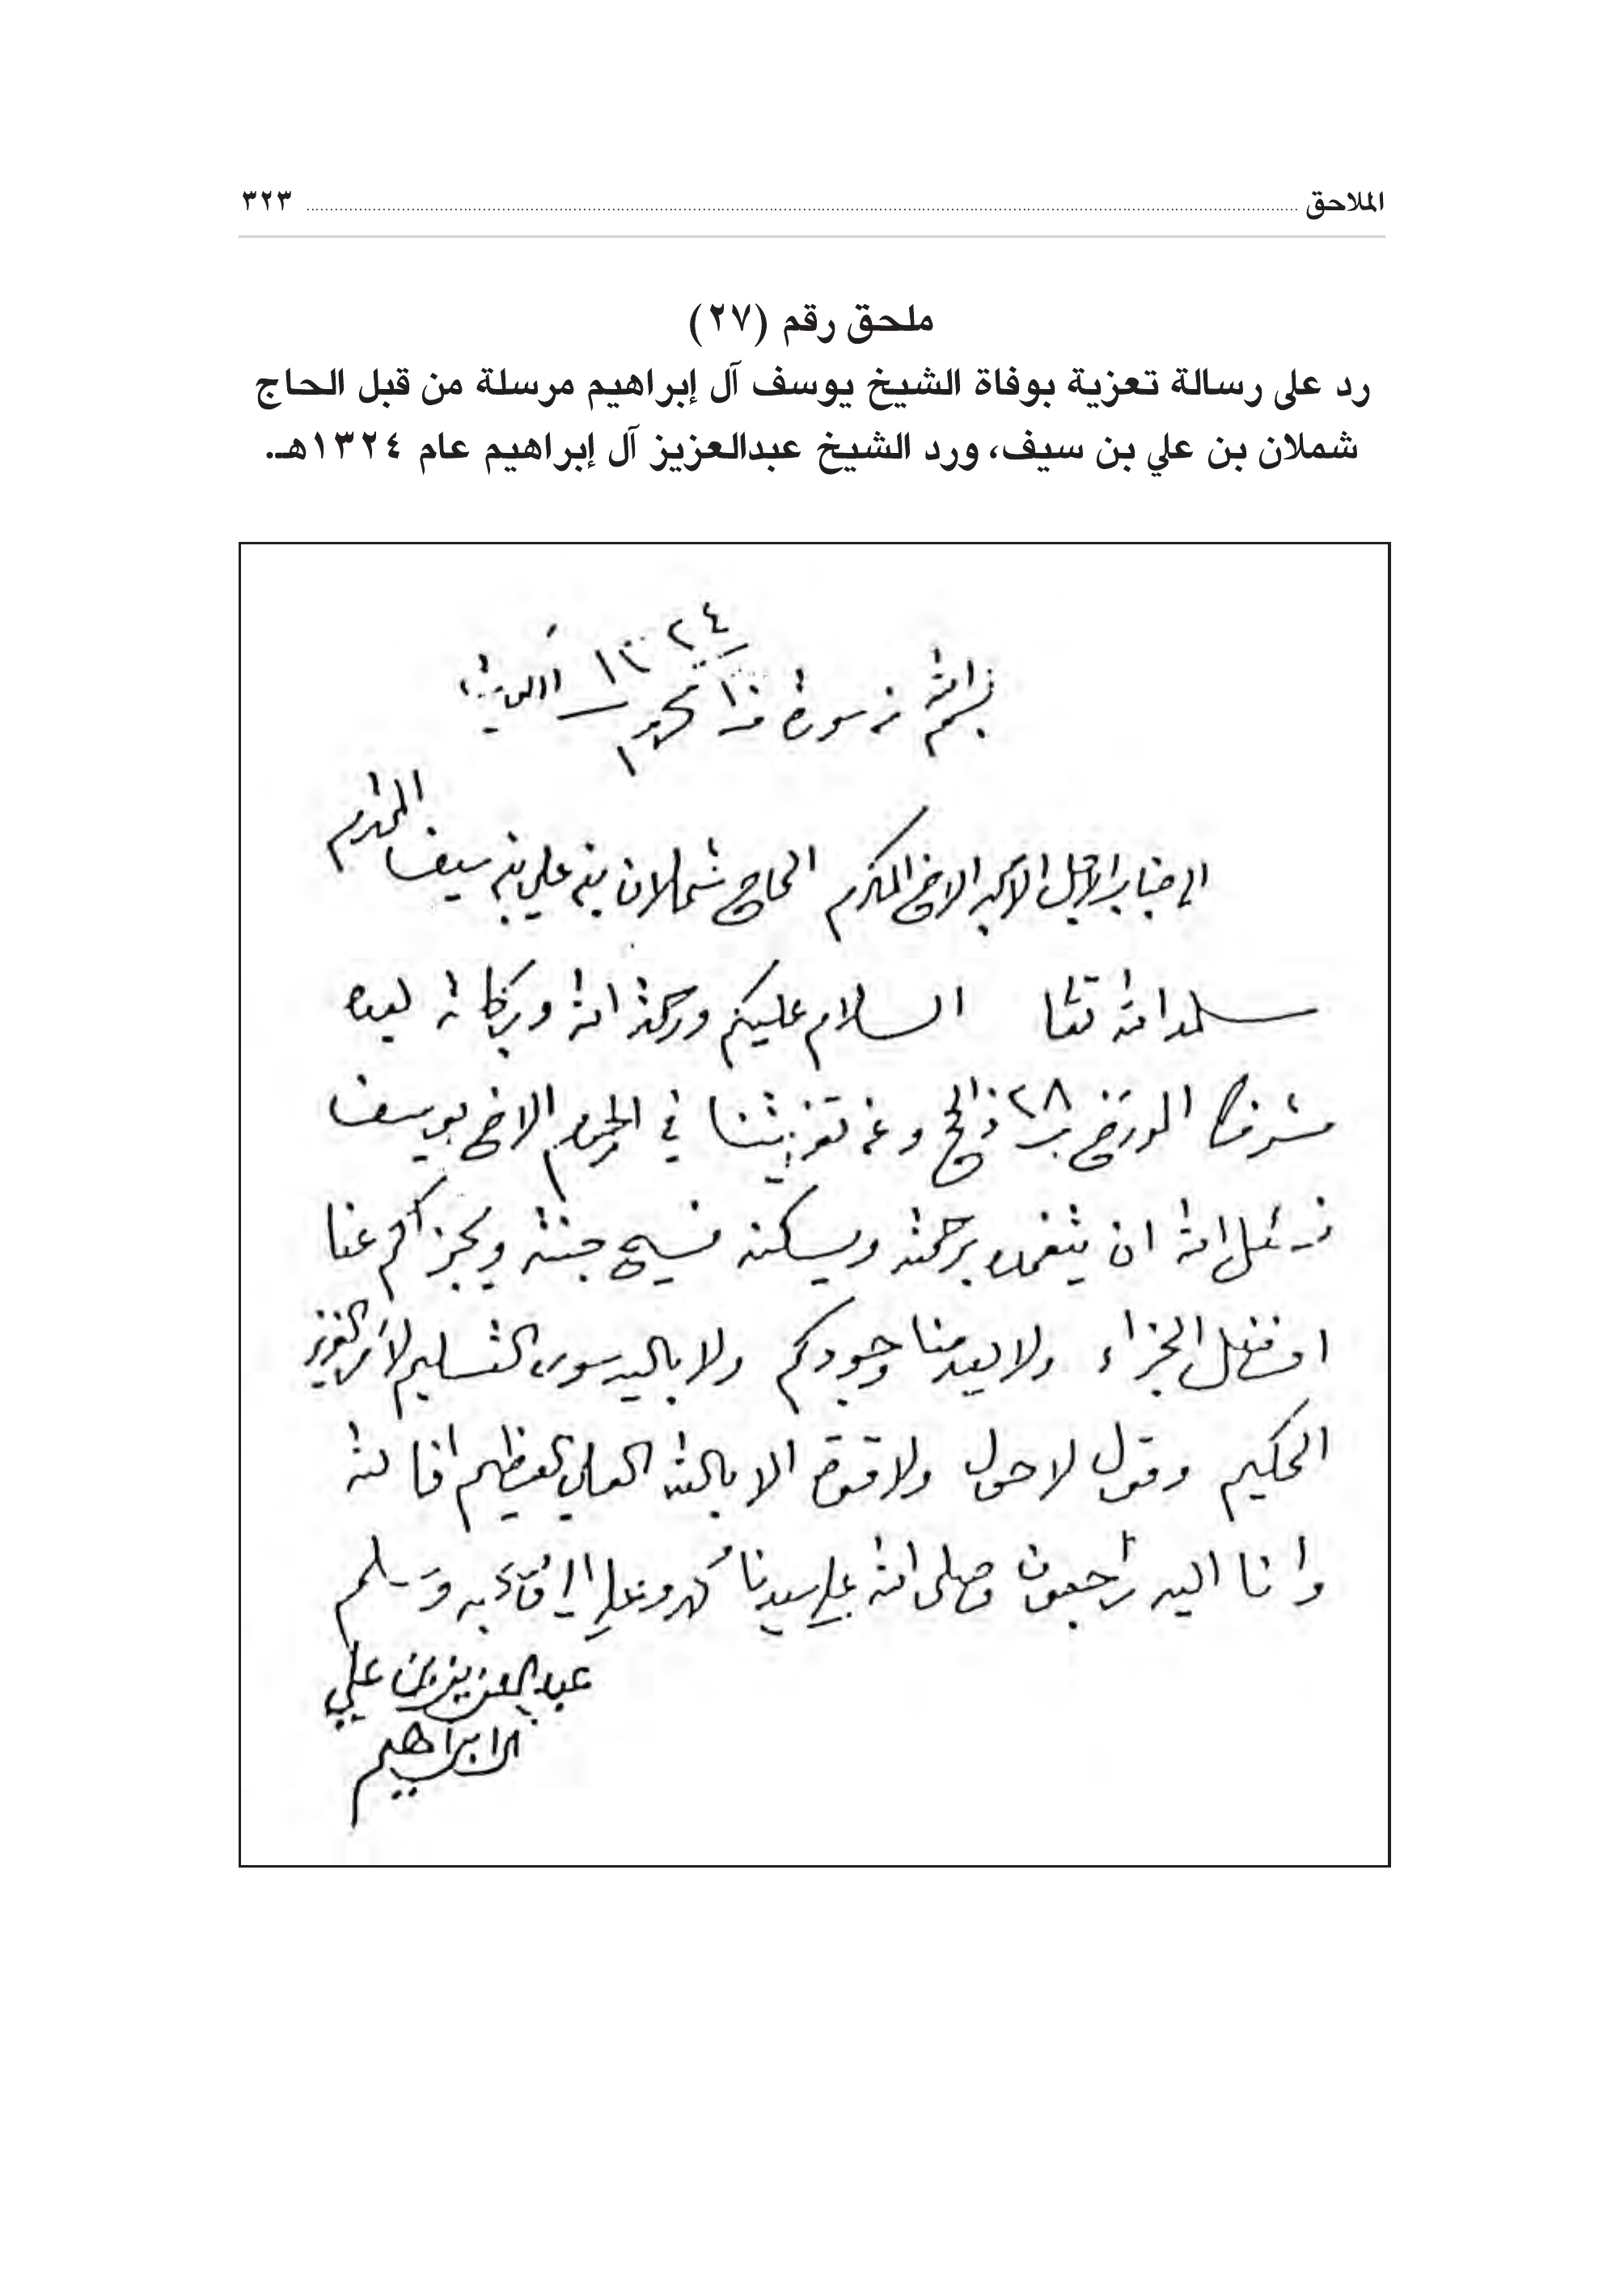 الملاحق ٣٢٣
ملحق رقم (٢٧)
رد على رسالة تعزية بوفاة الشيخ يوسف آل إبراهيم مرسلة من قبل الحاج
شملان بن علي بن سيف، ورد الشيخ عبدالعزيز آل إبراهيم عام ١٣٢٤هـ.
١٣٢٤
بسم الله
الى جناب الاجل الامجد الاخ المكرم الحاج شملان بن علي بن سيف المحترم
سلمه الله تعا السلام عليكم ورحمة الله وبركاته لبعده
مشرفكم المورخ ٢٨ ذالحج وعن تعزيتنا في المرحوم الاخ يوسف
نسئل الله ان يتغمده برحمته ويسكنه فسيح جنته ويجزاكم عنا
افضل الجزاء ولا يعدمنا وجودكم ولا باليد سوى التسليم لامر العزيز
الحكيم وقول لا حول ولا قوة الا بالله العلي العظيم انا لله
وانا اليه راجعون وصلى الله على سيدنا محمد وعلى وسلم
عبدالعزيز بن علي
ال ابراهيم